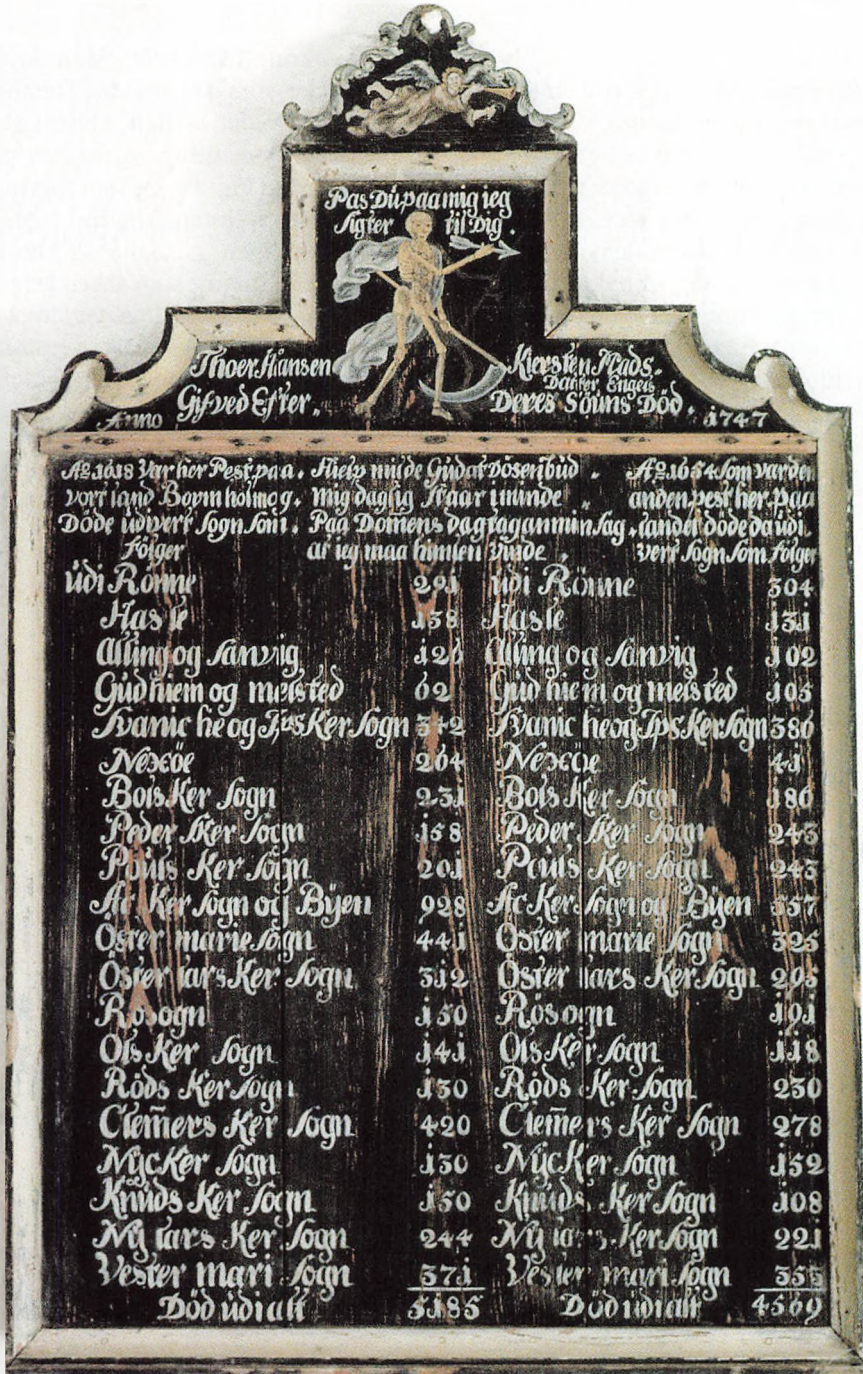 Pas Du paa mig ieg
sigter til Dig.
Thoer Hansen Kiersten Mads.
Datter, Engels
Gifved Efter,, Deres Söuns Död.
Anno 1747
Ao 1618 Var her Pest paa. Hielp milde Gud at Dösens bud. Ao 1654 Som var den
vort land Borrinholm og. mig daglig staar i minde anden pest her paa
Döde udi vort sogn som. Paa Domens dag tag an min sag. landet döde da udi.
fölger at ieg maa himlen vinde vert sogn som fölger
udi Rönne 291 udi Rönne 304
Hasle 138 Hasle 131
Alling og Sanvig 126 Alling og Sanvig 102
Gudhiem og melsted 62 Gudhiem og melsted 105
Svaniche og Ips Ker sogn 342 Svaniche og Ips Ker sogn 386
Nexöe 264 Nexöe 41
Bols Ker sogn 231 Bols Ker sogn 186
Peder sKer sogn 158 Peder sKer sogn 243
Pouls Ker sogn 201 Pouls Ker sogn 243
Ac Ker sogn og Byen 928 Ac Ker sogn og Byen 557
Öster marie sogn 441 Öster marie sogn 325
Öster lars Ker sogn 312 Öster lars Ker sogn 295
Röosogn 150 Rösogn 191
Ols Ker sogn 141 Ols Ker sogn 118
Röds Ker sogn 130 Röds Ker sogn 230
Clem̃ers Ker sogn 420 Clem̃ers Ker sogn 278
Nyc Ker sogn 130 Nyc Ker sogn 152
Knuds Ker sogn 150 Knuds Ker sogn 108
Ny lars Ker sogn 244 Ny lars Ker sogn 221
Vester mari sogn 371 Vester mari sogn 353
Död udi alt 5185 Död udi alt 4569